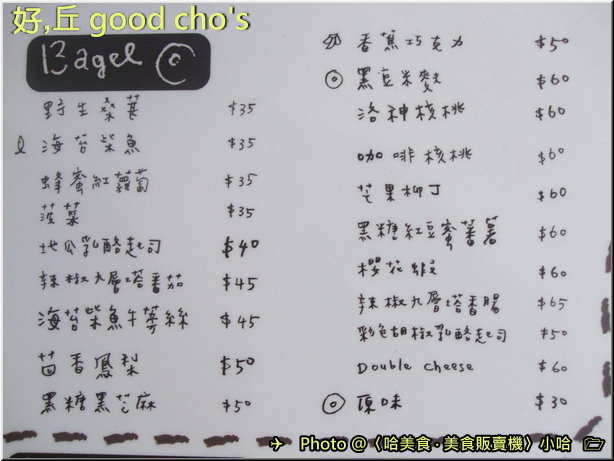 好,丘 good cho's
Bagel
野生桑葚 $35
海苔柴魚 $35
蜂蜜紅蘿蔔 $35
菠菜 $35
地瓜乳酪起司 $40
辣椒九層塔番茄 $45
海苔柴魚牛蒡絲 $45
茴香鳳梨 $50
黑糖黑芝麻 $50
香蕉巧克力 $50
黑豆米麩 $60
洛神核桃 $60
咖啡核桃 $60
芒果柳丁 $60
黑糖紅豆蜜蕃薯 $60
櫻花蝦 $60
辣椒九層塔香腸 $65
彩色胡椒乳酪起司 $50
Double cheese $60
原味 $30
Photo @〈哈美食·美食販賣機〉小哈